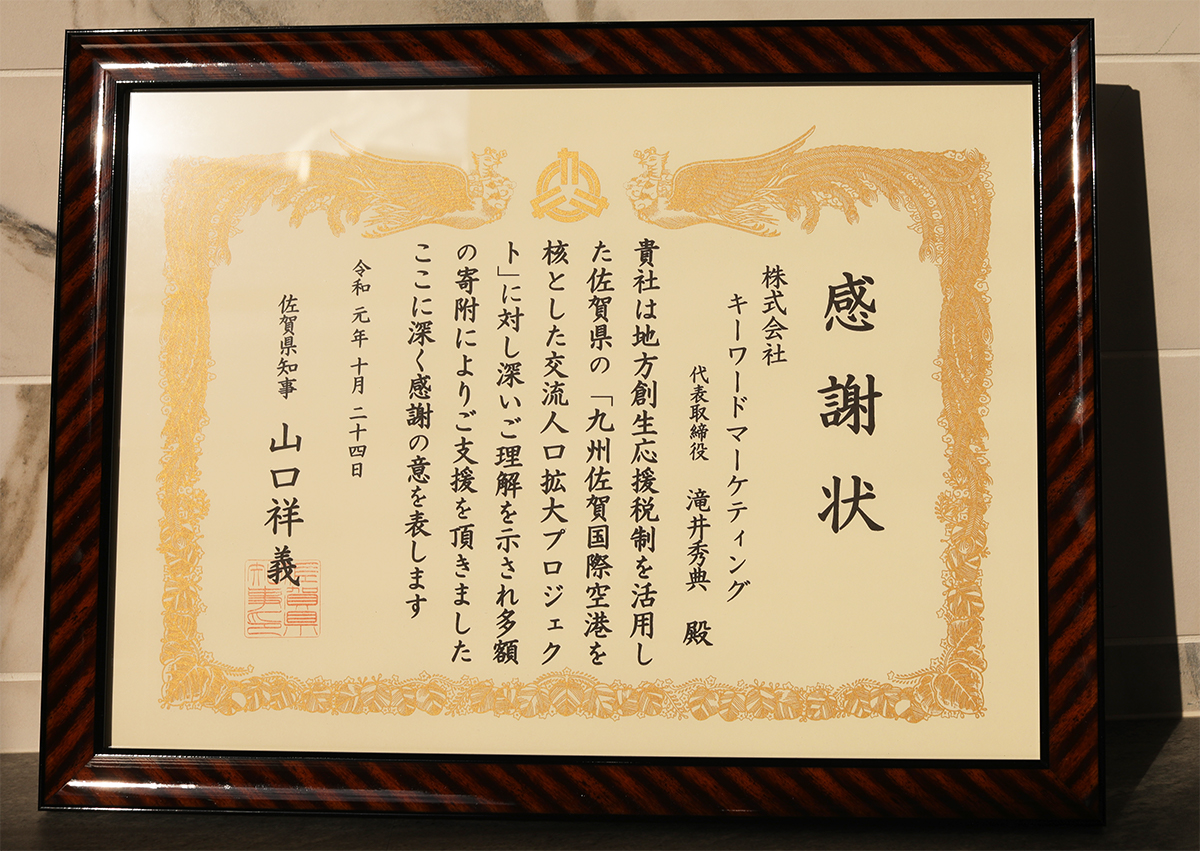 感謝状
株式会社
キーワードマーケティング
代表取締役 滝井秀典 殿
貴社は地方創生応援税制を活用し
た佐賀県の「九州佐賀国際空港を
核とした交流人口拡大プロジェク
ト」に対し深いご理解を示され多額
の寄附によりご支援を頂きました
ここに深く感謝の意を表します
令和元年十月二十四日
佐賀県知事 山口祥義
佐賀県
知事印